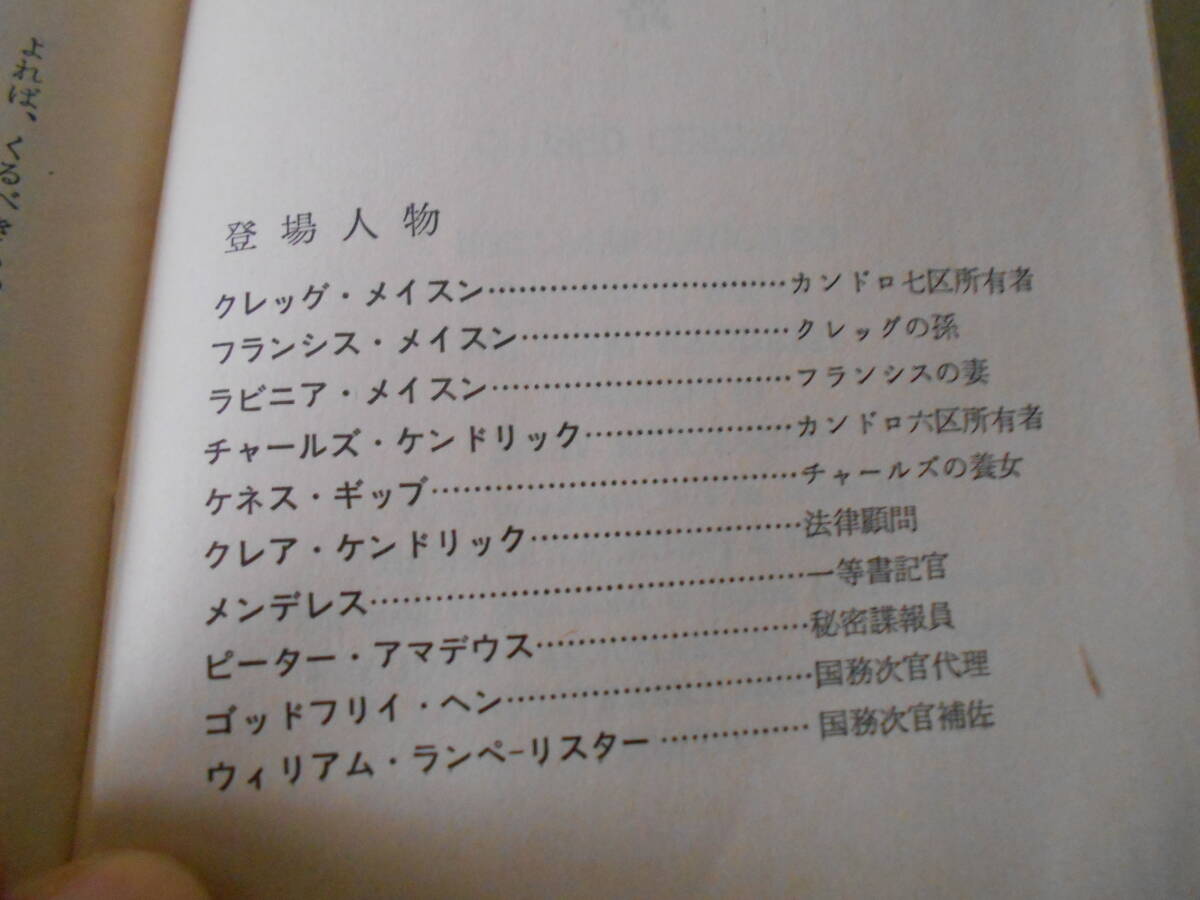 登場人物
クレッグ・メイスン……………………………カンドロ七区所有者
フランシス・メイスン…………………………クレッグの孫
ラビニア・メイスン……………………………フランシスの妻
チャールズ・ケンドリック……………………カンドロ六区所有者
ケネス・ギップ…………………………………チャールズの養女
クレア・ケンドリック…………………………法律顧問
メンデレス………………………………………一等書記官
ピーター・アマデウス…………………………秘密諜報員
ゴッドフリイ・ヘン……………………………国務次官代理
ウィリアム・ランペーリスター……………国務次官補佐
よれば、くるべき